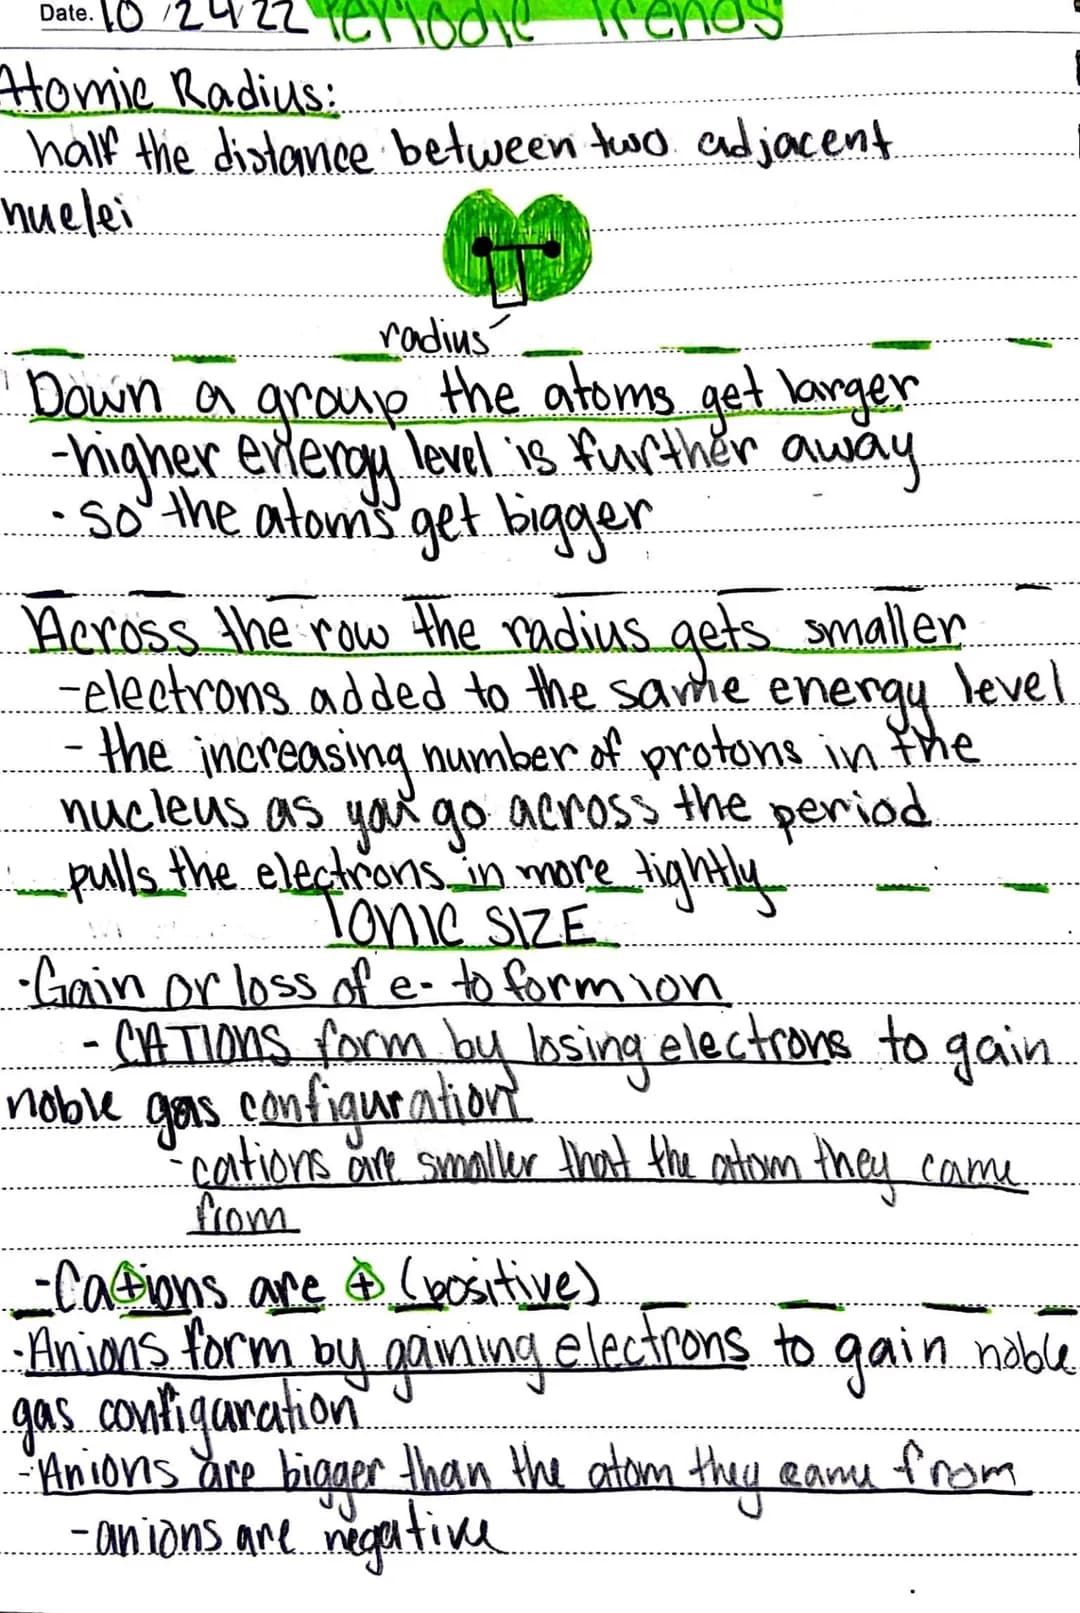 Date. 10/24/22 Periodic Trends
Atomic Radius:
half the distance between two adjacent
nuclei
radius
Down a group the atoms get larger
-higher energy level is further away
· so the atoms get bigger
Across the row the radius gets smaller
-electrons added to the same energy level
- the increasing number of protons in the
nucleus as you go across the period
pulls the electrons in more tightly
IONIC SIZE
·Gain or loss of e- to form ion
- CATIONS form by losing electrons to gain
noble gas configuration
-cations are smaller that the atom they came
from
-Cations are + (positive)
·Anions form by gaining electrons to gain noble
gas configaration
-Anions are bigger than the atom they came from
-anions are negative